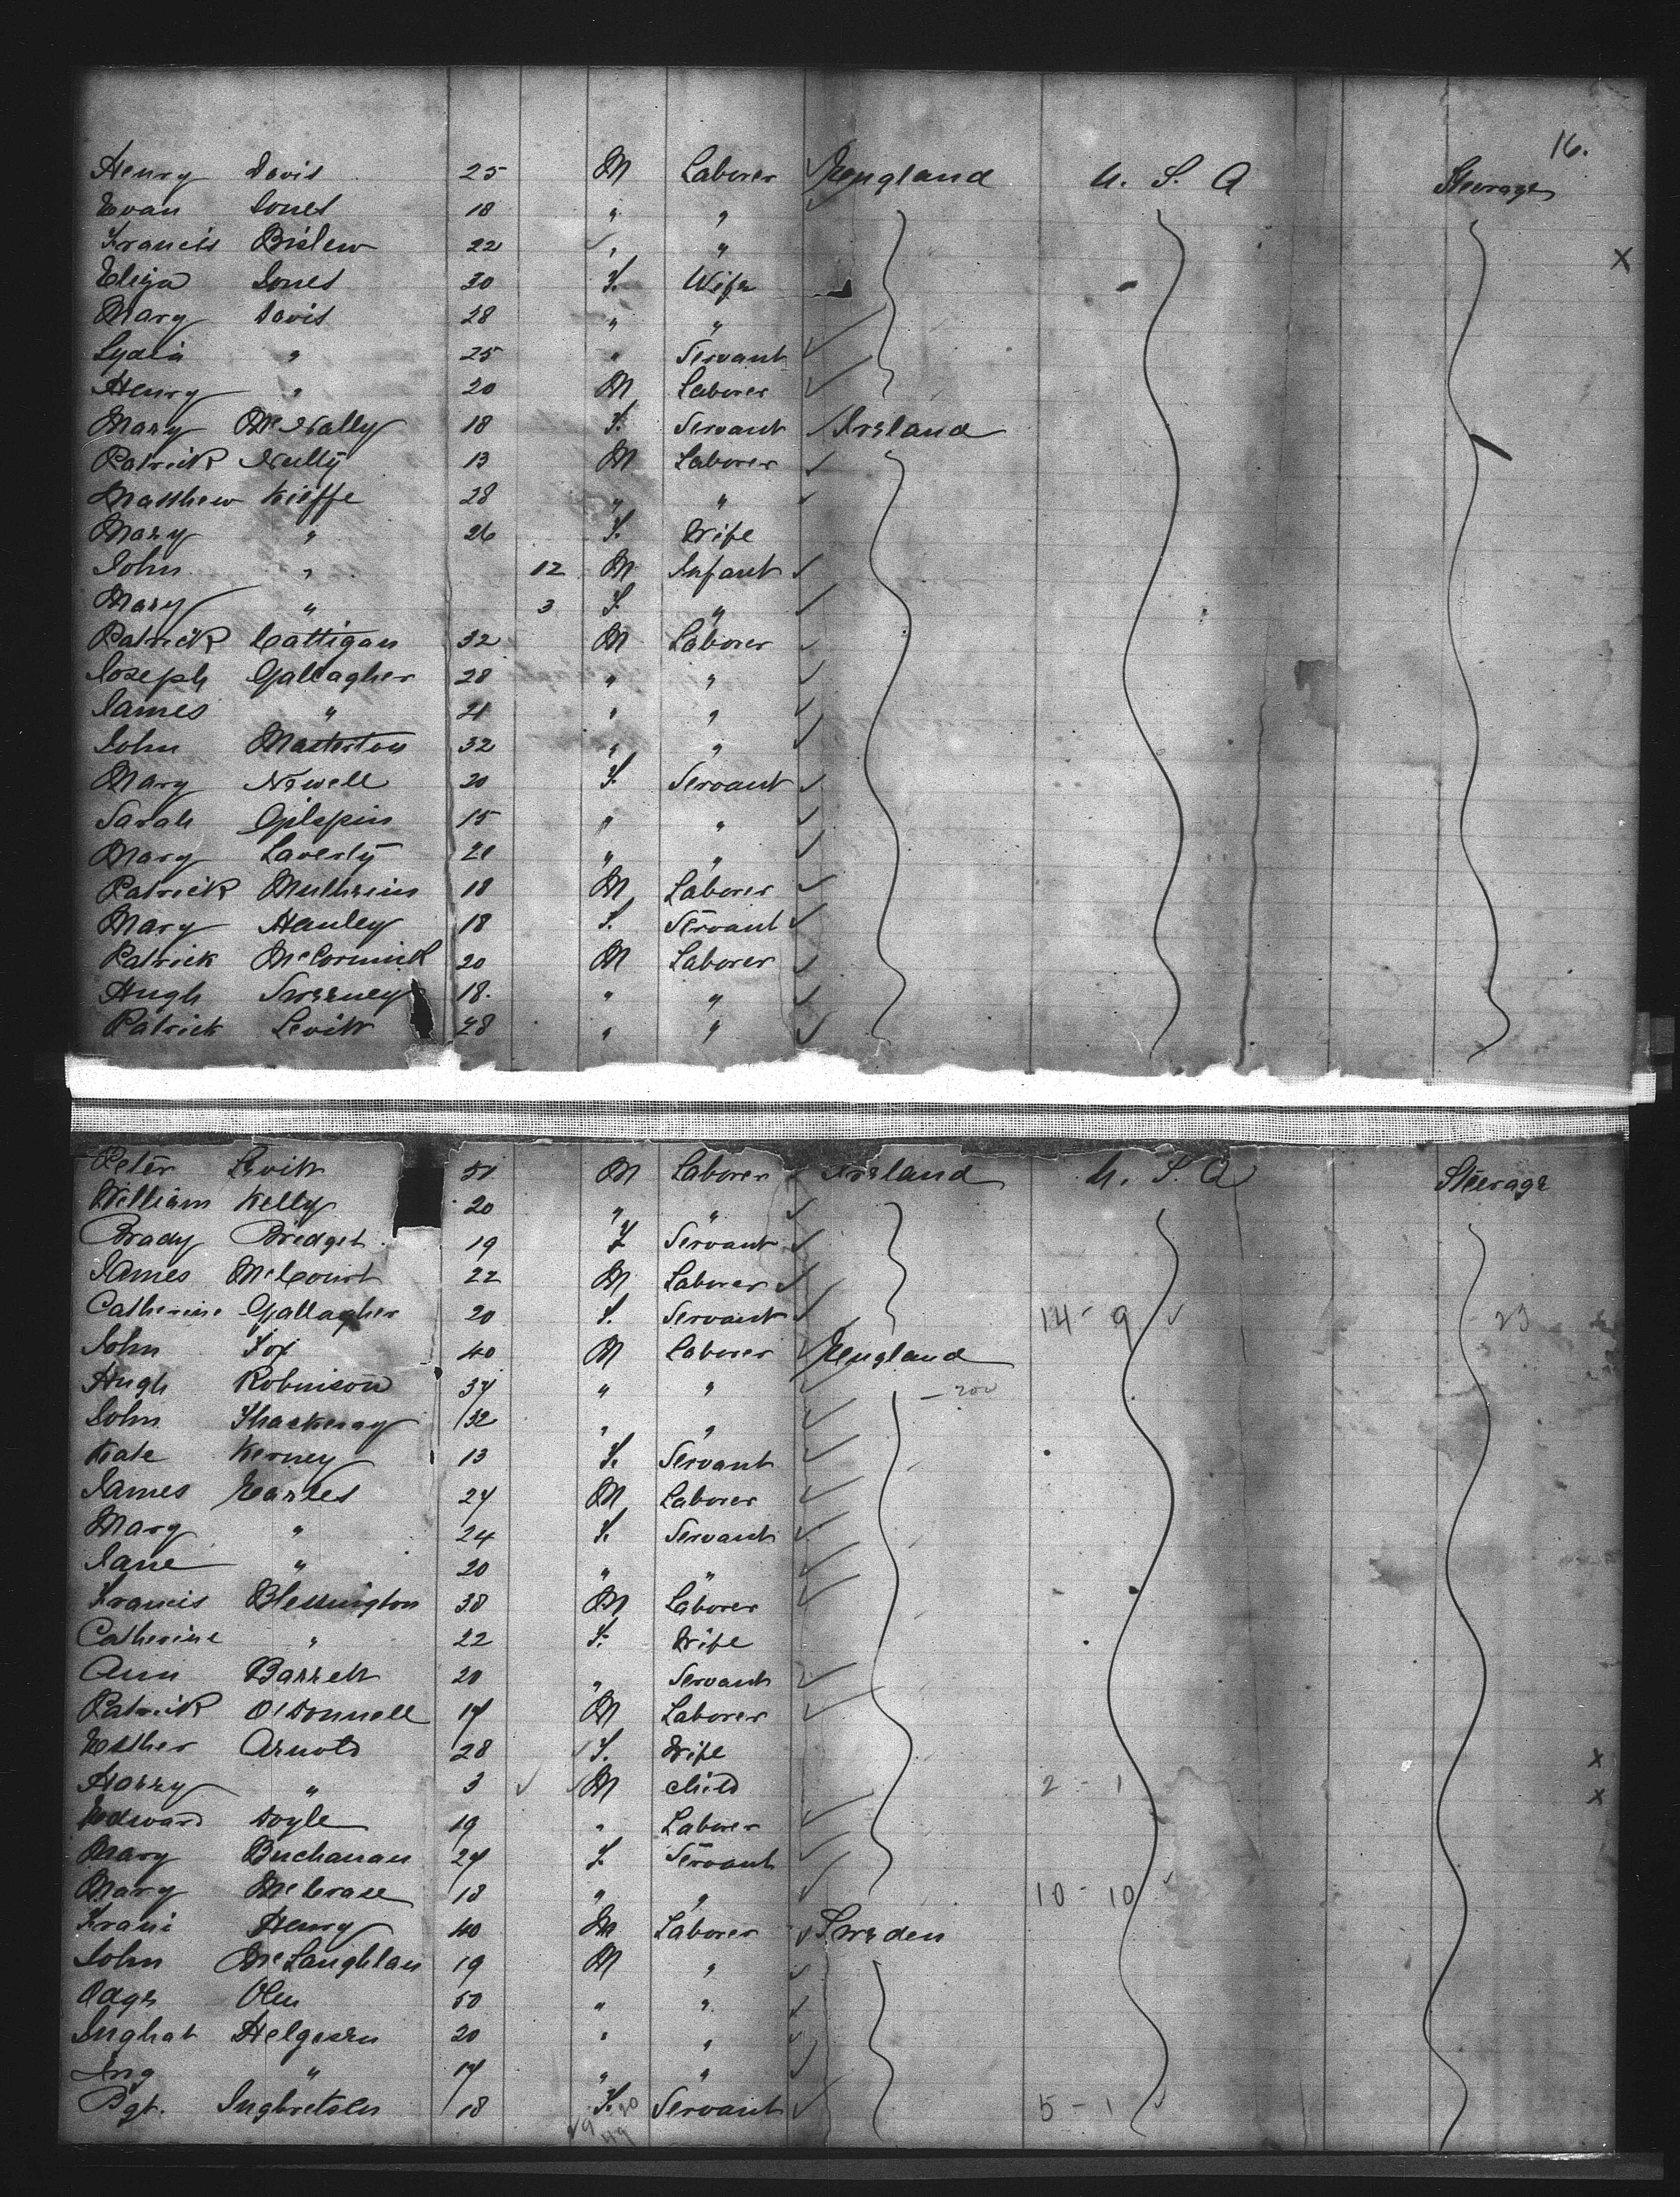 16.
Henry Davis 25 M Laborer England U. S. A Steerage
Evan Jones 18 " "
Francis Bislew 22 " " X
Eliza Jones 30 F. Wife
Mary Davis 28 " "
Lydia " 25 " Servant
Henry " 20 M Laborer
Mary McNally 18 F. Servant Ireland
Patrick Nully 13 M Laborer
Matthew Kieffe 28 " "
Mary " 26 F. Wife
John " 12 M Infant
Mary " 3 F. "
Patrick Cattigan 32 M Laborer
Joseph Gallagher 28 " "
James " 21 " "
John Masterton 32 " "
Mary Newell 20 F. Servant
Sarah Gilspin 15 " "
Mary Laverty 21 " "
Patrick 18 M Laborer
Mary Hanley 18 F. Servant
Patrick McCormick 20 M Laborer
Hugh Sweeney 18. " "
Patrick Levitt 28 " "
Peter Levitt M Laborer Ireland U. S. A Steerage
William Kelly 20 " "
Brady Bridget 19 F Servant
James McCourt 22 M Laborer
Catherine Gallagher 20 F. Servant 14 - 9 23
John Fox 40 M Laborer England
Hugh Robinson 37 " "
John Thackeray 32 " "
Kate Kerney 13 F. Servant
James Earles 27 M Laborer
Mary " 24 F. Servant
Jane " 20 " "
Francis Blessington 38 M Laborer
Catherine " 22 F. Wife
Ann Barrett 20 " Servant
Patrick O'Donnell 17 M Laborer
Esther Arnold 28 F. Wife X
Harry " 3 M child 2 - 1 X
Edward Doyle 19 " Laborer
Mary Buchanan 27 F. Servant
Mary McCrase 18 " " 10 - 10
Frani Henry 40 M Laborer Sweden
John McLaughlan 19 M "
Olen 50 " "
Helgesen 20 " "
Ing " 17 " "
Bgt. Ingbretsen 18 F. Servant 5 - 1